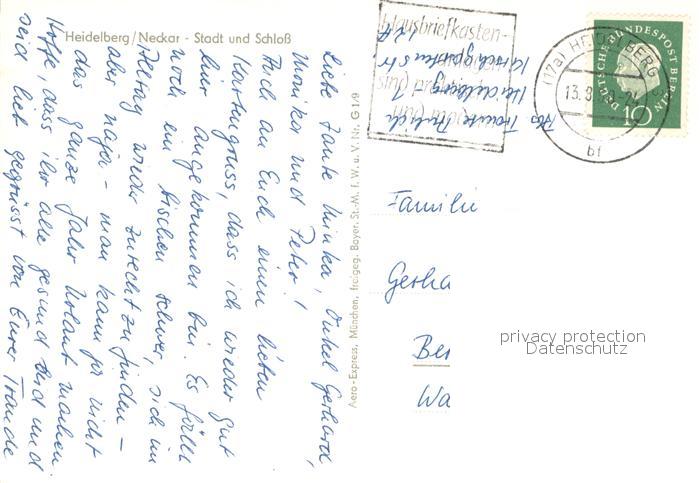 Heidelberg/Neckar - Stadt und Schloß
Liebe Tante Minka, Onkel Gerhard,
Monika und Peter!
Auch an Euch einen lieben
Kartengruss, dass ich wieder gut
hier angekommen bin. Es fällt
noch ein bischen schwer, sich im
Alltag wieder zurecht zu finden –
aber naja – man kann ja nicht
das ganze Jahr Urlaub machen.
Hoffe, dass ihr alle gesund seid und
seid lieb gegrüsst von Eurer Traude
Aero-Express, München, freigeg. Bayer. St.-M. f. W. u. V. Nr. G 1/9
Abs. Traude
Heidelberg
Hausbriefkasten-
(17a) HEIDELBERG
13.8.
bf
DEUTSCHE BUNDESPOST BERLIN
10
Familie
Gerha
Ber
Wa
privacy protection
Datenschutz